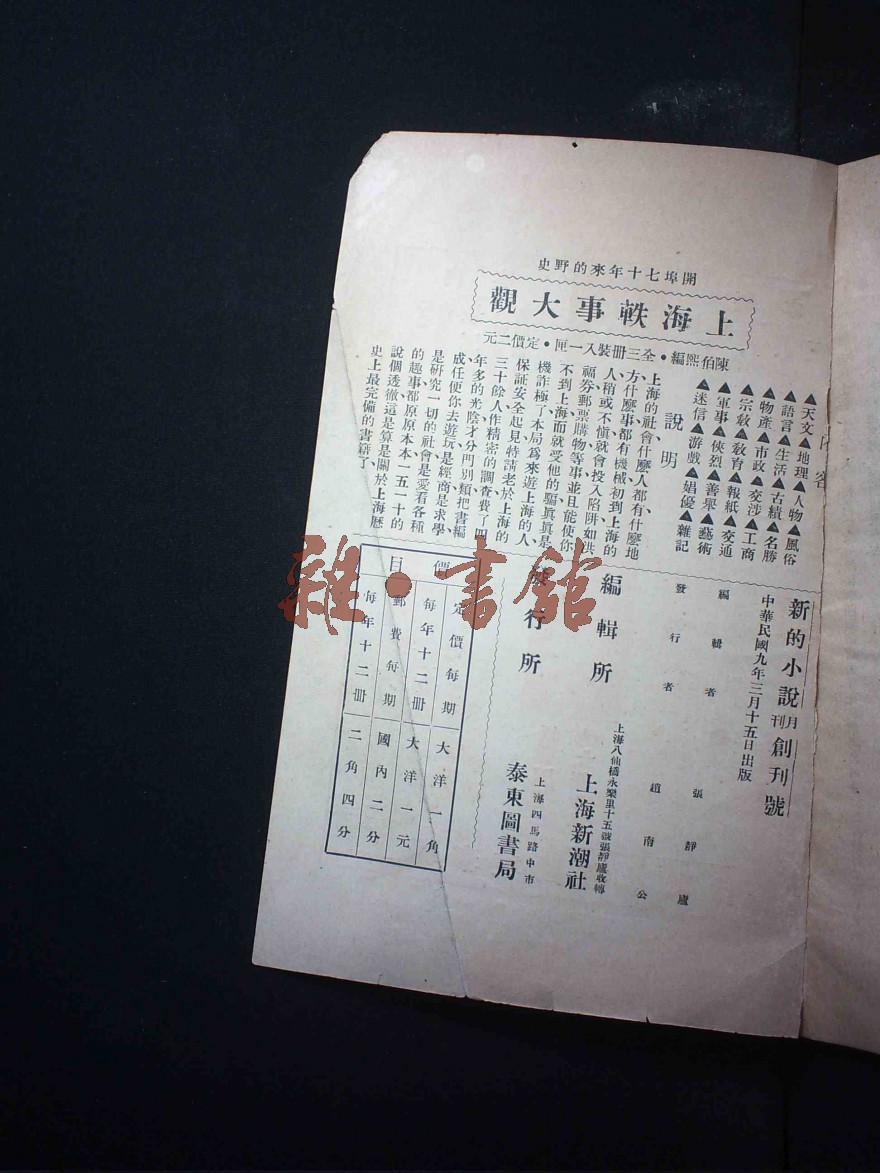 開埠七十年來的野史
上海軼事大觀
陳伯熙編•全三冊裝入一匣•定價二元
內容
▲天文▲地理▲人物▲風俗
▲語言▲生活▲古蹟▲名勝
▲物產▲市政▲交涉▲工商
▲宗教▲教育▲報紙▲交通
▲軍事▲俠烈▲善舉▲藝術
▲迷信▲游戲▲娼優▲雜記
說明
上海的社會什麼人都有、什麼地
方什麼事都有機械初到上海的
人、稍或不愼就會投入陷阱如共
福券郵票購物、等事並且能使你
不到上海而就受他的騙眞眞是
機詐極了本局爲來遊上海的人、
保証安全起見特請老於上海的
三十餘人作精密的調查費了四
年多的光陰才分門別類把書編
成任使你去遊玩、是經商是求學
是研究一切的社會是愛看各種
的趣事都原原本本一五一十的
說個透徹、這是算是關於上海歷
史上最完備的書籍了、
新的小說月刊創刊號
中華民國九年三月十五日出版
編輯者 張靜廬
發行者 趙南公
編輯所 上海新潮社
上海八仙橋永樂里十五號張靜廬收轉
發行所 泰東圖書局
上海四馬路中市
價目
定價每期 大洋一角
每年十二冊 大洋一元
郵費每期 國內二分
每年十二冊 二角四分
雜·書館